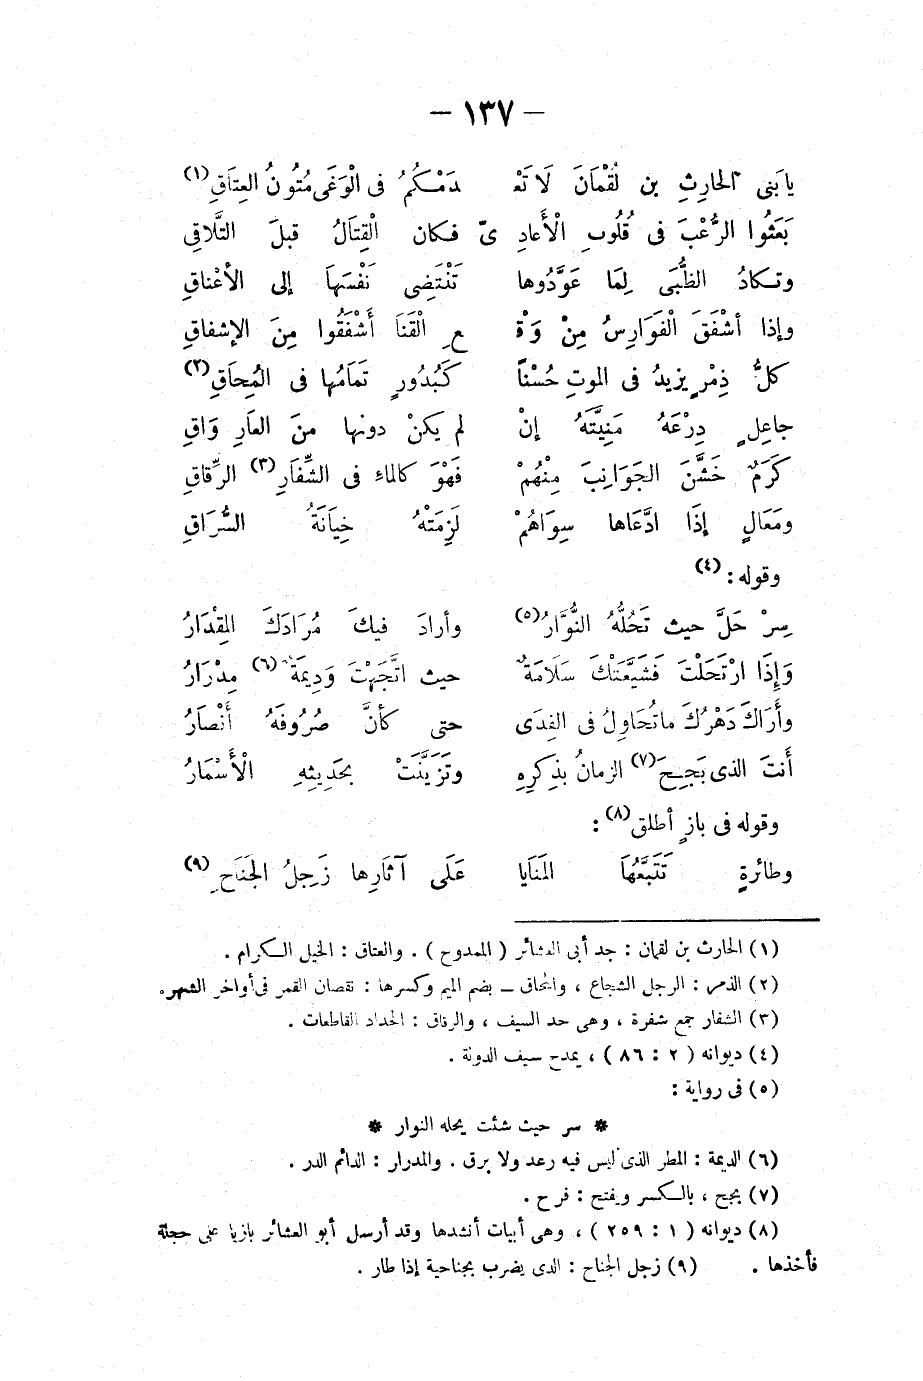 — ١٣٧ —
يا بَنى الحارِثِ بن لُقْمَانَ لَا تَعْـ ـدَمْكُمُ فى الْوَغَى مُتُونُ العِتَاقِ (١)
بَعَثُوا الرُّعْبَ فى قُلُوبِ الْأَعادِ ىّ فكان الْقِتَالُ قبلَ التَّلاقِى
وتكادُ الظُّبَى لِمَا عَوَّدُوها تَنْتَضِى نَفْسَهَا إلى الأعْناقِ
وإذا أشْفَقَ الْفَوَارِسُ مِنْ وَقْـ ـعِ الْقَنَا أَشْفَقُوا مِنَ الإشفاقِ
كلُّ ذِمْرٍ يزيدُ فى الموتِ حُسْناً كَبُدُورٍ تَمَامُها فى المُحاقِ (٢)
جاعِلٍ دِرْعَهُ مَنِيَّتَهُ إنْ لم يكنْ دونها منَ العَارِ وَاقِ
كَرَمٌ خَشَّنَ الجَوَانِبَ مِنْهُمْ فَهْوَ كالماءِ فى الشِّفَارِ (٣) الرِّقاقِ
ومَعَالٍ إذَا ادَّعَاها سِوَاهُمْ لَزِمَتْهُ خِيَانَةُ السُّرَاقِ
وقوله : (٤)
سِرْ حَلَّ حيث تَحُلُّهُ النُّوَّارُ (٥) وأرادَ فيكَ مُرَادَكَ المِقْدَارُ
وَإِذَا ارْتَحَلْتَ فَشَيَّعَتْكَ سَلَامَةٌ حيث اتَّجَهْتَ وَدِيمَةٌ (٦) مِدْرَارُ
وأَرَاكَ دَهْرُكَ ما تُحَاوِلُ فى العِدَى حتى كأنَّ صُرُوفَهُ أَنْصَارُ
أَنتَ الذى بَجِحَ (٧) الزمانُ بذِكرِهِ وتَزَيَّنَتْ بحَدِيثِهِ الْأَسْمَارُ
وقوله فى بازٍ أطلق (٨) :
وطائرةٍ تَتَبَّعُهَا المَنَايا عَلَى آثارِها زَجِلُ الجَنَاحِ (٩)
(١) الحارث بن لقمان : جد أبى العشائر ( الممدوح ) . والعتاق : الخيل الكرام .
(٢) الذمر : الرجل الشجاع ، والمحاق ــ بضم الميم وكسرها : نقصان القمر فى أواخر الشهر .
(٣) الشفار جمع شفرة ، وهى حد السيف ، والرقاق : الحداد القاطعات .
(٤) ديوانه ( ٢ : ٨٦ ) ، يمدح سيف الدولة .
(٥) فى رواية :
* سر حيث شئت يحله النوار *
(٦) الديمة : المطر الذى ليس فيه رعد ولا برق . والمدرار : الدائم الدر .
(٧) بجح ، بالكسر ويفتح : فرح .
(٨) ديوانه ( ١ : ٢٥٩ ) ، وهى أبيات أنشدها وقد أرسل أبو العشائر بازيا على حجلة
فأخذها . (٩) زجل الجناح : الذى يضرب بجناحية إذا طار .